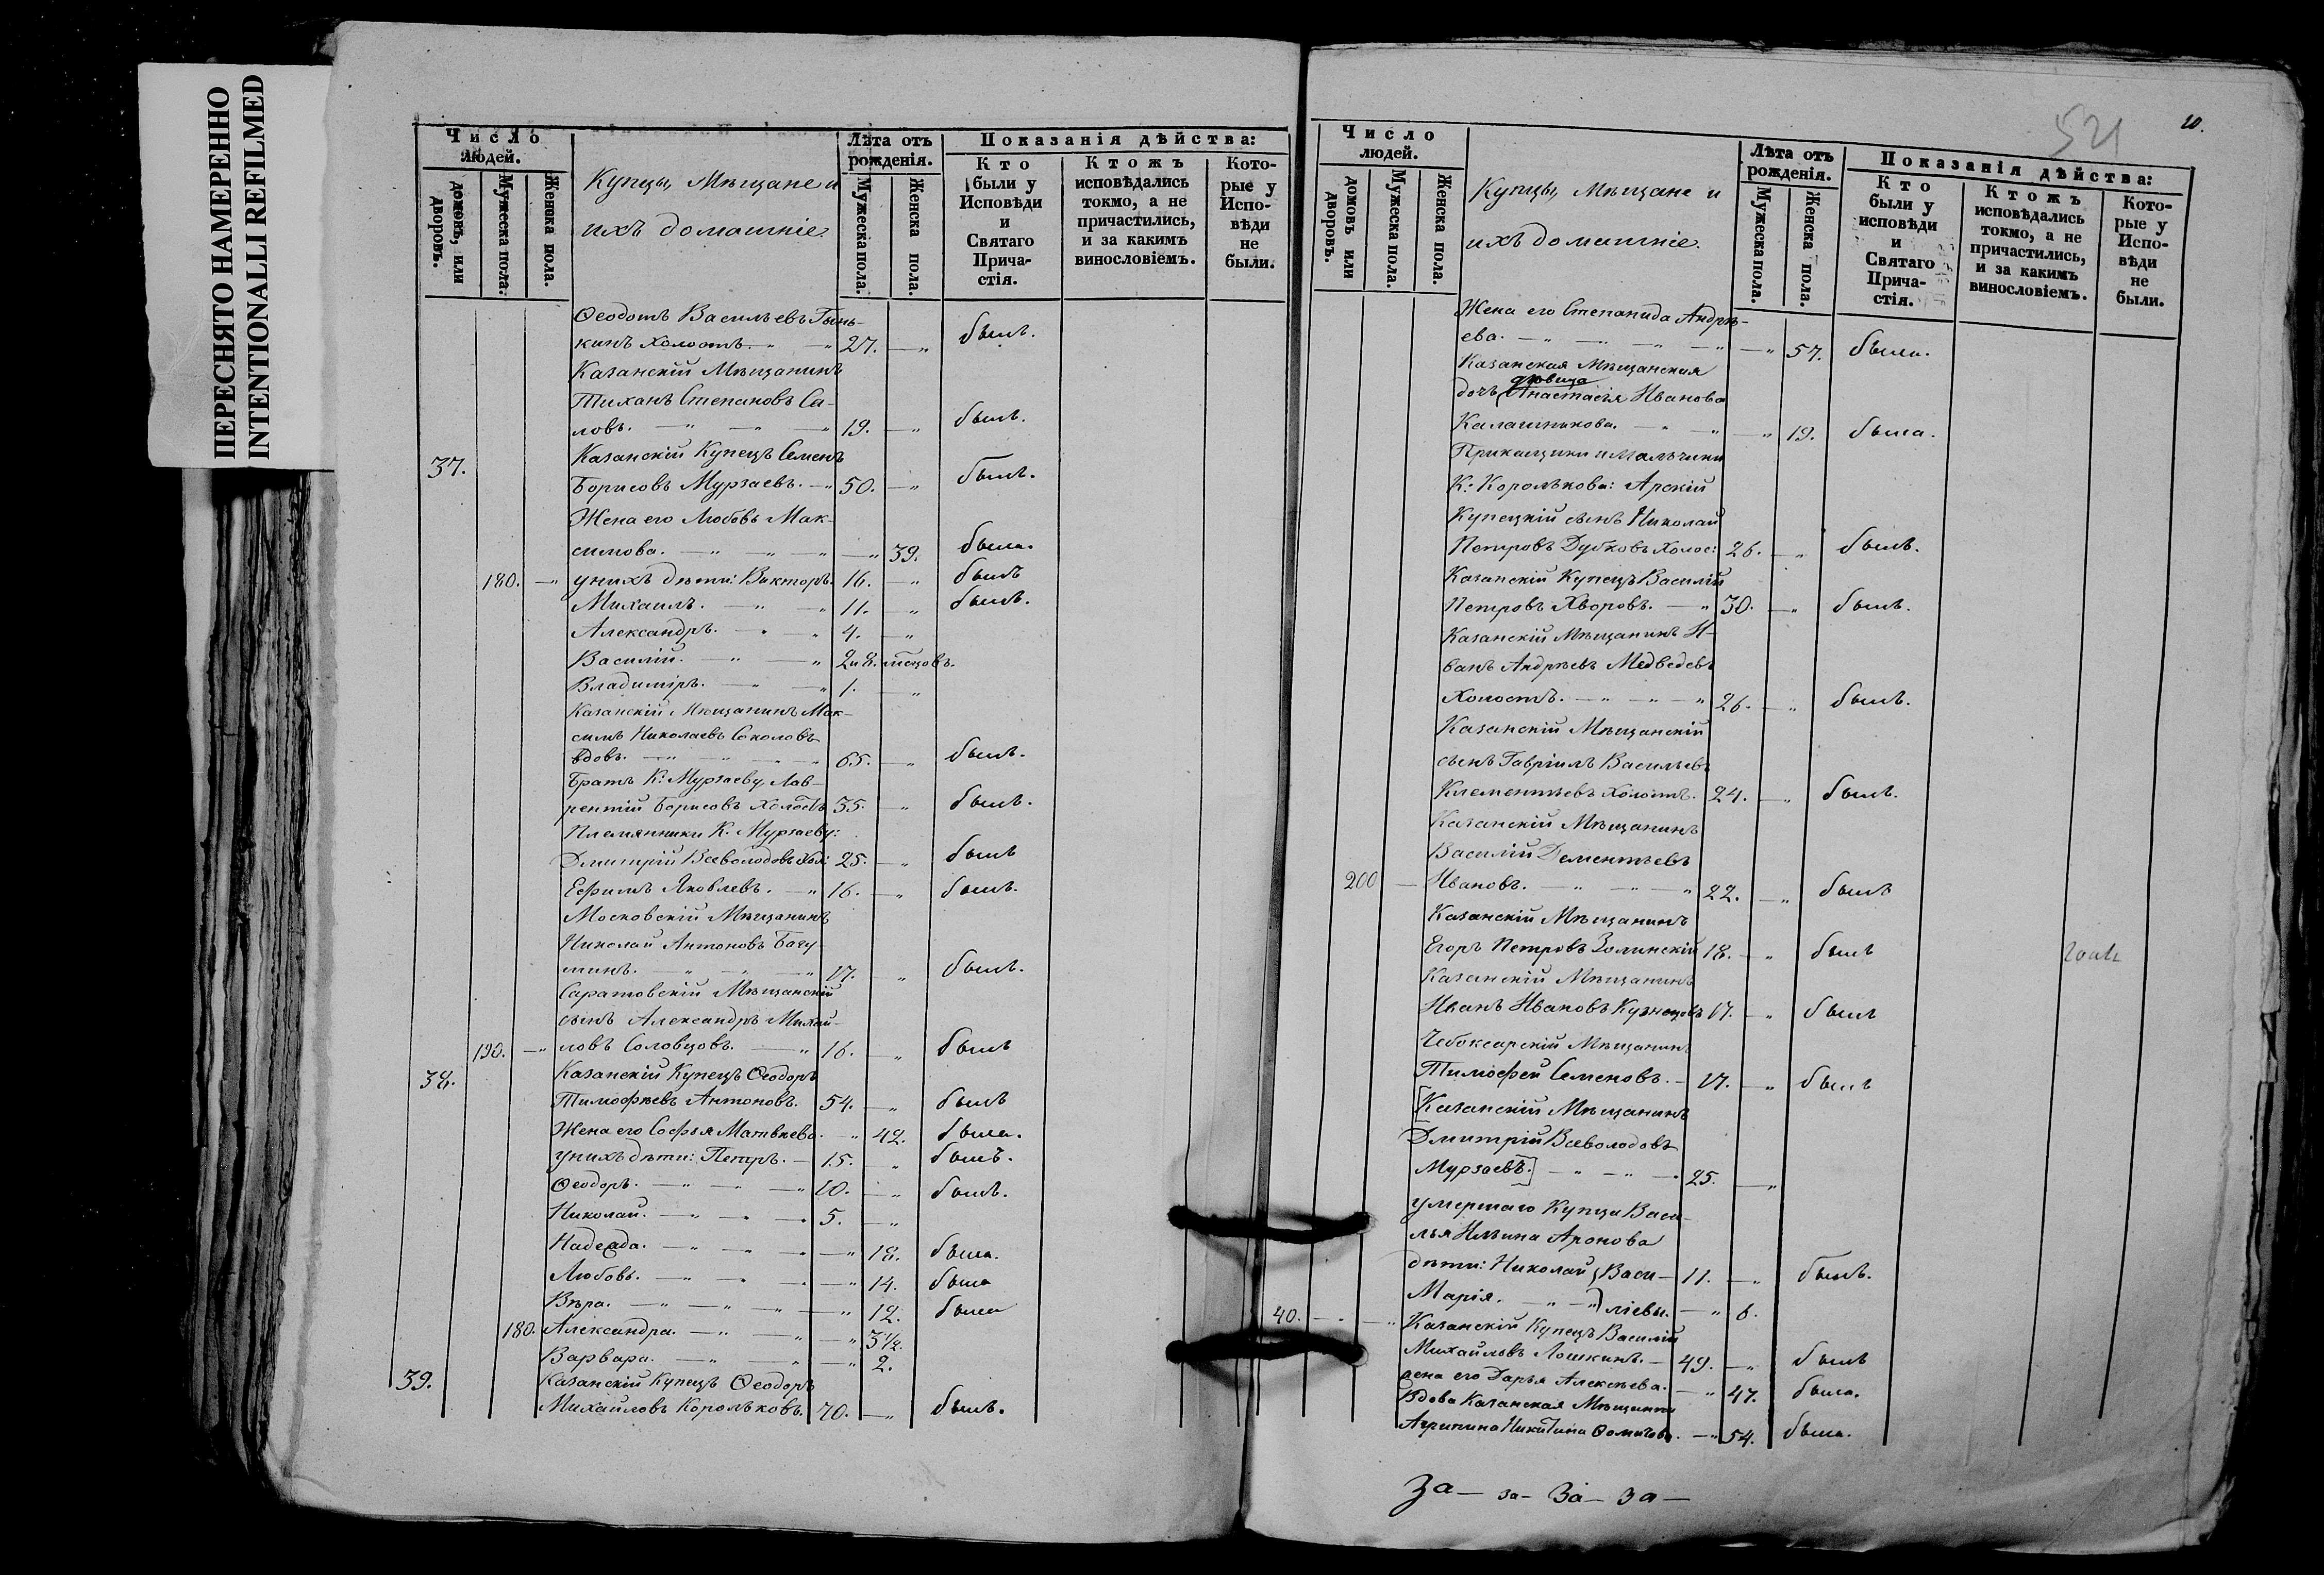 ПЕРЕСНЯТО НАМЕРЕННО
INTENTIONALLI REFILMED
Число людей.
домовъ, или дворовъ.
Мужеска пола.
Женска пола.
Купцы, Мѣщане и
ихъ домашніе.
Лѣта отъ рожденія.
Мужеска пола.
Женска пола.
Показанія дѣйства:
Кто были у Исповѣди и Святаго Прича-стія.
Ктожъ исповѣдались токмо, а не причастились, и за какимъ винословіемъ.
Кото-рые у Испо-вѣди не были.
Ѳеодотъ Васильевъ
кинъ холостъ. — 27. — былъ.
Казанскій Мѣщанинъ
Тиханъ Степановъ Са-
ловъ. — 19. — былъ.
37. Казанскій Купецъ Семенъ
Борисовъ Мурзаевъ. — 50. — былъ.
Жена его Любовь Мак-
симова. — 39. была.
180. — у нихъ дѣти: Викторъ. 16. — былъ
Михаилъ. — 11. — былъ.
Александръ. — 4. —
Василій. — 2 и 8. мѣсяцовъ.
Владиміръ. — 1. —
Казанскій Мѣщанинъ Мак-
симъ Николаевъ Соколовъ
вдовъ. — 65. — былъ.
Братъ К: Мурзаеву, Лав-
рентій Борисовъ Холостъ 35. — былъ.
Племянники К. Мурзаеву:
Дмитрій Всеволодовъ Хол: 25. — былъ
Ефимъ Яковлевъ. — 16. — былъ.
Московскій Мѣщанинъ
Николай Антоновъ
17. — былъ.
Саратовскій Мѣщанскій
сынъ Александръ Михай-
190. — ловъ Соловцовъ. — 16. — былъ
38. Казанскій Купецъ Ѳеодоръ
Тимофѣевъ Антоновъ. 54. — былъ
Жена его Софья Матвѣева. — 42. была.
у нихъ дѣти: Петръ. — 15. — былъ.
Ѳеодоръ. — 10. — былъ.
Николай. — 5. —
Надежда. — 18. была.
Любовь. — 14. была
Вѣра. — 12. была
180. Александра. — 3½.
Варвара. — 2.
39. Казанскій Купецъ Ѳеодоръ
Михайловъ Корольковъ. 70. — былъ.
521
20.
Число людей.
домовъ или дворовъ.
Мужеска пола.
Женска пола.
Купцы, Мѣщане и
ихъ домашніе.
Лѣта отъ рожденія.
Мужеска пола.
Женска пола.
Показанія дѣйства:
Кто были у исповѣди и Святаго Прича-стія.
Ктожъ исповѣдались токмо, а не причастились, и за какимъ винословіемъ.
Кото-рые у Испо-вѣди не были.
Жена его Степанида Андрѣ-
ева. — 57. была.
Казанская Мѣщанская
дѣвица
дочь Анастасія Иванова
Калашникова. — 19. была.
Прикащики и Мальчики
К: Королькова: Арскій
Купецкій сынъ Николай
Петровъ Дубковъ холос: 26. — былъ.
Казанскій Купецъ Василій
Петровъ Хворовъ. — 30. — былъ.
Казанскій Мѣщанинъ И-
ванъ Андрѣевъ Медведевъ
холостъ. — 26. — былъ.
Казанскій Мѣщанскій
сынъ Гавріилъ Васильевъ
Клементьевъ холостъ. 24. — былъ.
Казанскій Мѣщанинъ
Василій Дементьевъ
200 — Ивановъ. — 22. — былъ
Казанскій Мѣщанинъ
Егоръ Петровъ Золинскій 18. — былъ
Казанскій Мѣщанинъ
Иванъ Ивановъ Кузнецовъ 17. — былъ
Чебоксарскій Мѣщанинъ
Тимофей Семеновъ. — 17. — былъ
[Казанскій Мѣщанинъ
Дмитрій Всеволодовъ
Мурзаевъ.] — 25. —
умершаго Купца Васи-
лья Ильина Аронова
дѣти: Николай } Васи- 11. — былъ.
Марія. — } ліевы. — 6.
40. — Казанскій Купецъ Василій
Михайловъ Лошкинъ. — 49. — былъ
жена его Дарья Алексѣева. — 47. была.
Вдова Казанская Мѣщанка
Агрипина Никитина Ѳомичова. — 54. была.
За — за — За — за —